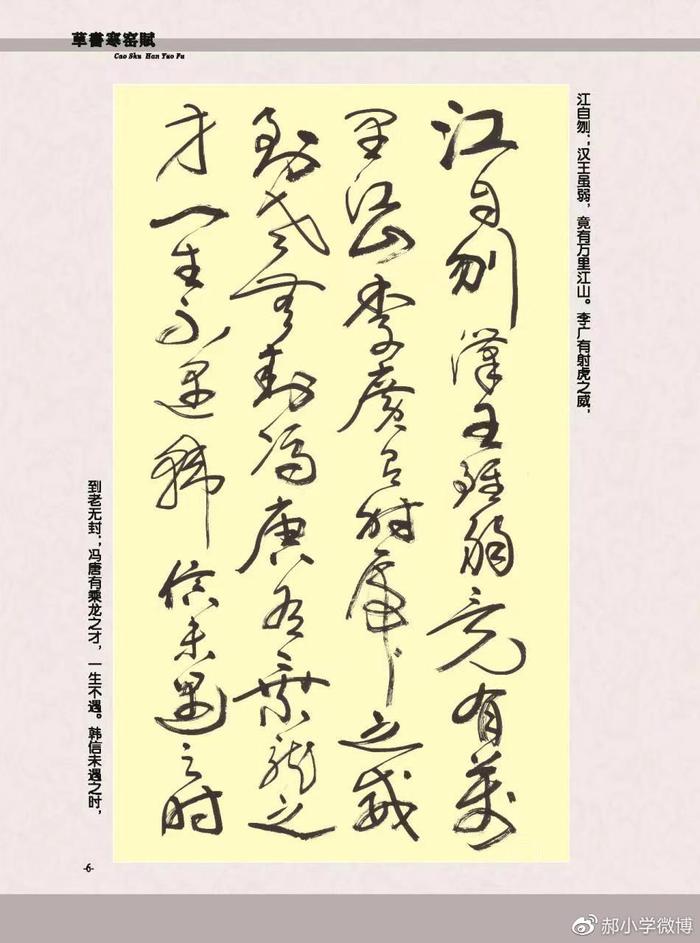 草書寒窑賦
Cao Shu Han Yao Fu
江自刎；汉王虽弱，竟有万里江山。李广有射虎之威，
江自刎漢王雖弱竟有萬
里江山李廣有射虎之威
到老無封馮唐有乘龍之
才一生不遇韩信未遇之时
到老无封；冯唐有乘龙之才，一生不遇。韩信未遇之时，
-6-
郝小学微博